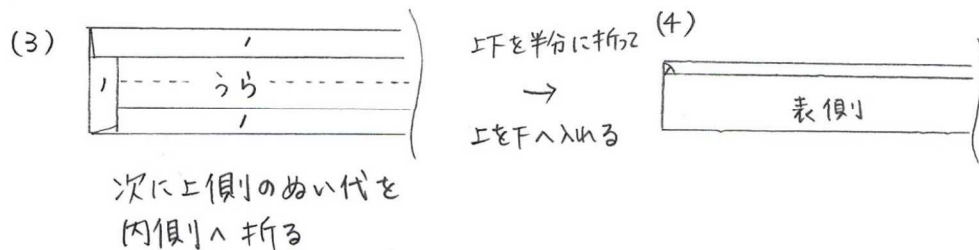 (3)
1
1
うら
1
次に上側のぬい代を
内側へ折る
上下を半分に折って
→
上を下へ入れる
(4)
表側